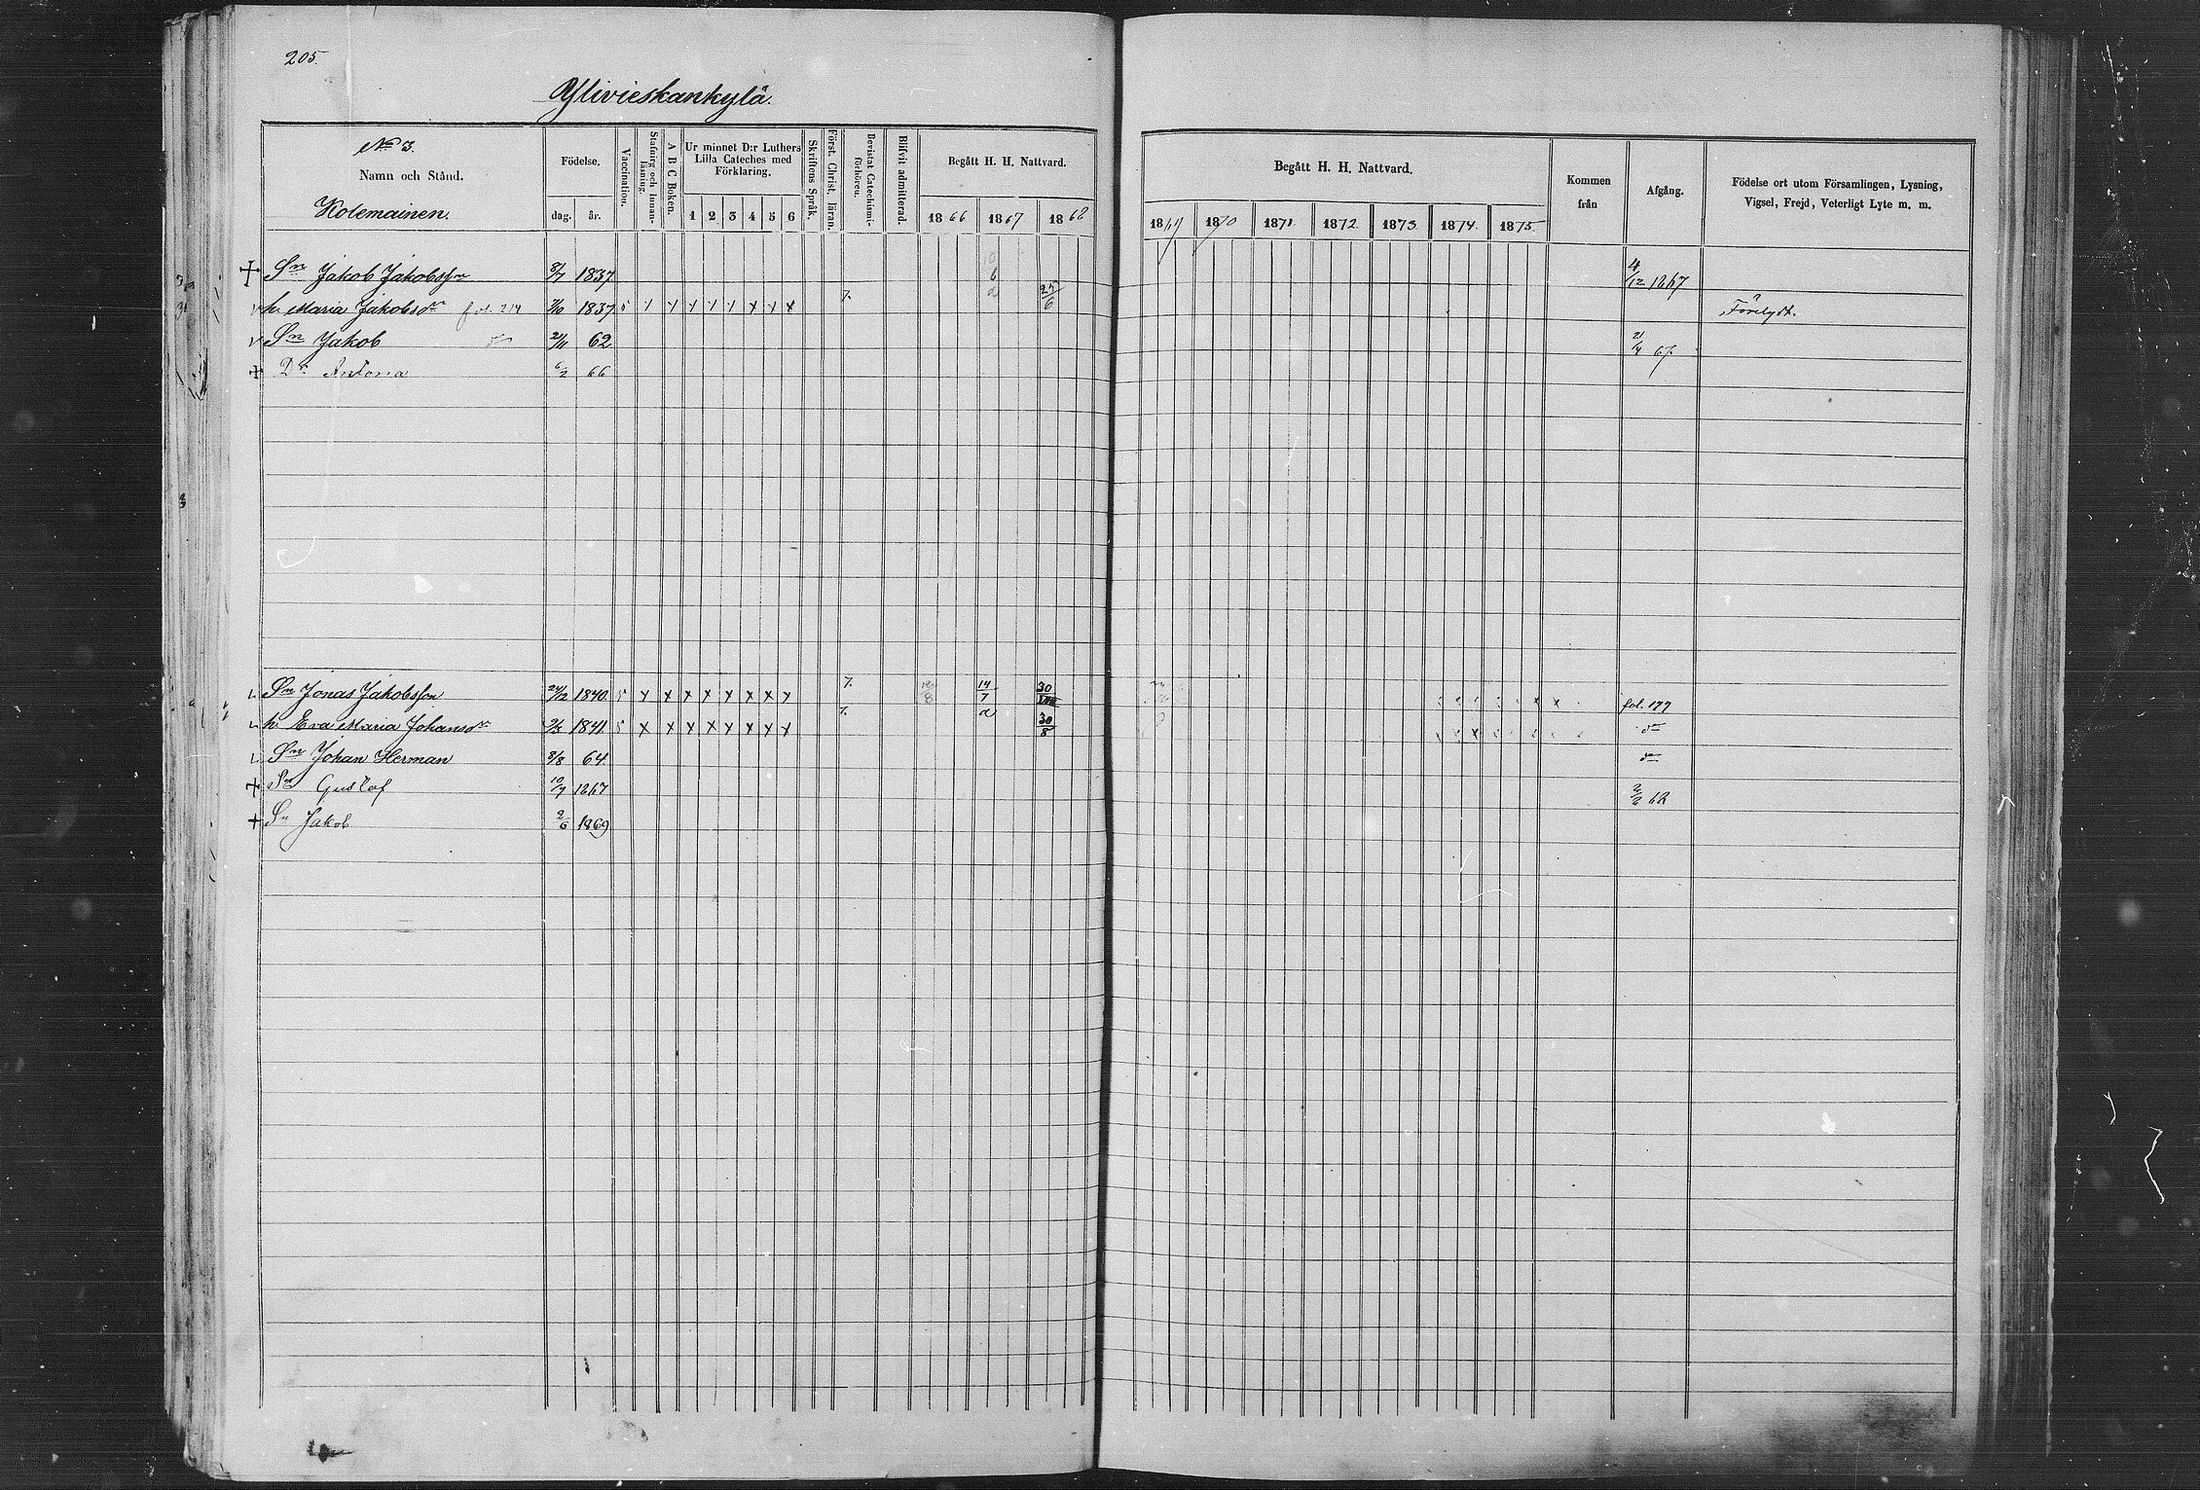 205.
Ylivieskankylä.
No 3.
Namn och Stånd.
Kolemainen.
Födelse.
dag. år.
Vaccination.
Stafning och Innanläsning.
A B C Boken.
Ur minnet D:r Luthers Lilla Cateches med Förklaring.
1 2 3 4 5 6
Skriftens Språk.
Först. Christ. läran.
Bevistat Catechismiförhören.
Blifvit admitterad.
Begått H. H. Nattvard.
1866 1867 1868
Begått H. H. Nattvard.
1869 1870 1871. 1872. 1873. 1874. 1875.
Kommen från
Afgång.
Födelse ort utom Församlingen, Lysning, Vigsel, Frejd, Veterligt Lyte m. m.
+ Sn Jakob Jakobsson 8/7 1837. 4/12 1867
h. Maria Jakobsdr fol. 214 1837. 5 7. 25/6
Sn Jakob 62
+ Dr Antona 6/2 66
Sn Jonas Jakobsson 24/12 1840. 5 x x x x x x x x 7. 14/7 30 fol. 199
h. Eva Maria Johansdr 1841. 5 x x x x x x x x 7. a 30/8 d
Sn Johan Herman 8/8 64. d
+ Sn Gustaf 10/7 1867 2/2 68
+ Sn Jakob 2/6 1869